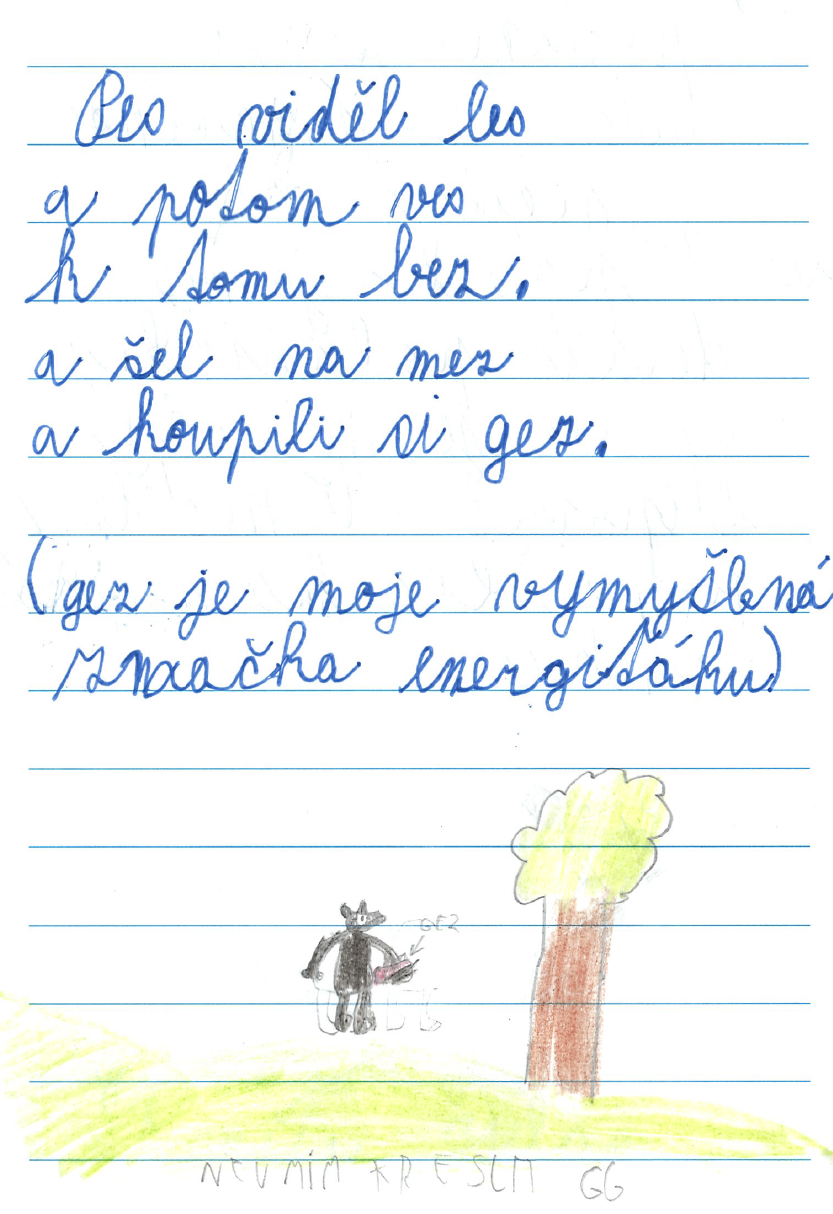 Pes viděl les
a potom ves
k tomu bez.
a šel na mez
a koupili si gez.
(gez je moje vymyšlená
značka energiťáku)
GEZ
NEUMÍM KRESLIT GG